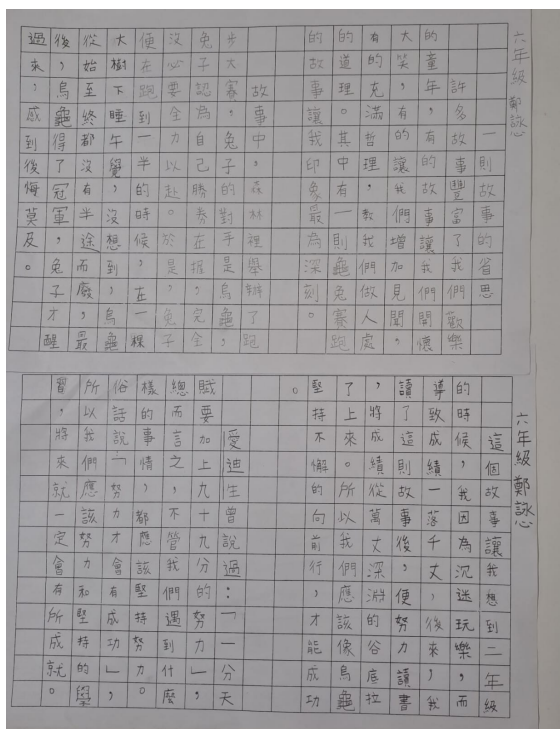 六年級 鄭詠心
一則故事的省思
許多故事豐富了我們歡樂
的童年,有的故事讓我們開懷
大笑,有的讓我增加見聞,
有的充滿哲理,教我們做人處
的道理。其中有一則龜兔賽跑
的故事讓我印象最為深刻。
故事中,森林裡舉辦了跑
步大賽,兔子的對手是烏龜,
兔子認為自己勝券在握,完全
沒必要全力以赴。於是,兔子
便在跑到一半的時候,在一棵
大樹下睡午覺,沒想到,烏龜
從始至終都沒有半途而廢,最
後,烏龜得了冠軍,兔子才醒
過來,感到後悔莫及。
六年級 鄭詠心
這個故事讓我想到二年級
的時候,我因為沉迷玩樂,而
導致成績一落千丈,後來,我
讀了這則故事後,便努力讀書
,將成績從萬丈深淵的谷底拉
了上來。所以我們應該像烏龜
堅持不懈的向前行,才能成功
。
愛迪生曾說過:「一分天
賦要加上九十九分的努力」,
總而言之,不管我們遇到什麼
樣的事情,都應該堅持努力。
俗話說「努力才會有成功」,
所以我們應該努力和堅持的學
習,將來就一定會有所成就。